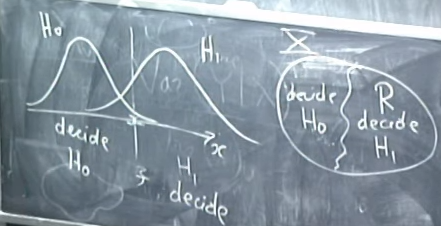 H₀
H₁
x
decide
H₀
H₁
decide
X
decide
H₀
R
decide
H₁